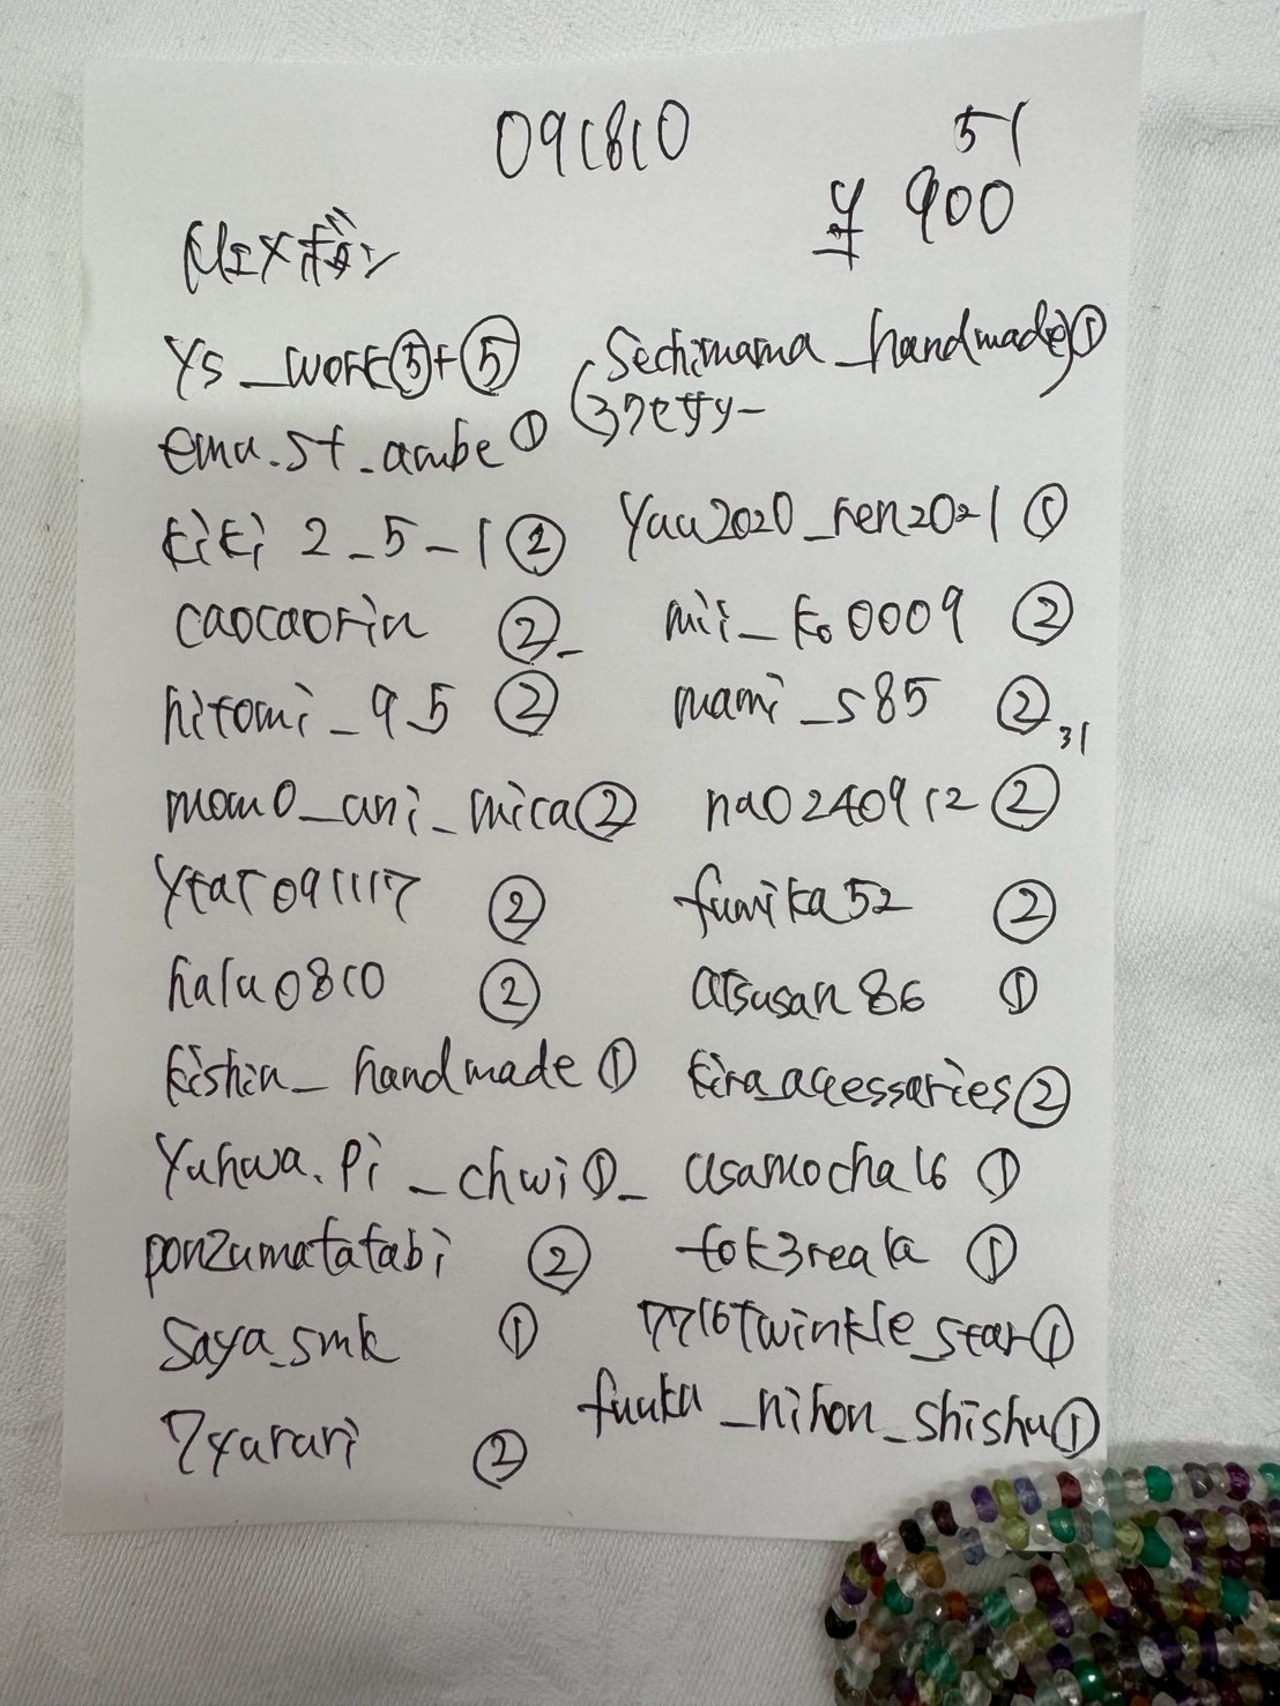 091810 51
¥ 900
MIXボタン
Ys_work⑤+⑤ Sechimama_handmade①
(ラクセサリー
emu.st_ambe①
kiki2_5_1② Yuu2020_ren2021①
caocaorin② mii_ko0009②
hitomi_9_5② mami_s85②
31
momo_ani_mica② na0240912②
Ytar091117② fumika52②
halu0810② atsusan86①
kishin_handmade① kira_accessaries②
Yuhwa.Pi_chwi① usamocha16①
ponzumatatabi② tok3reala①
Saya_smk① 7716twinkle_star①
7yarari② fuuka_nihon_shishu①